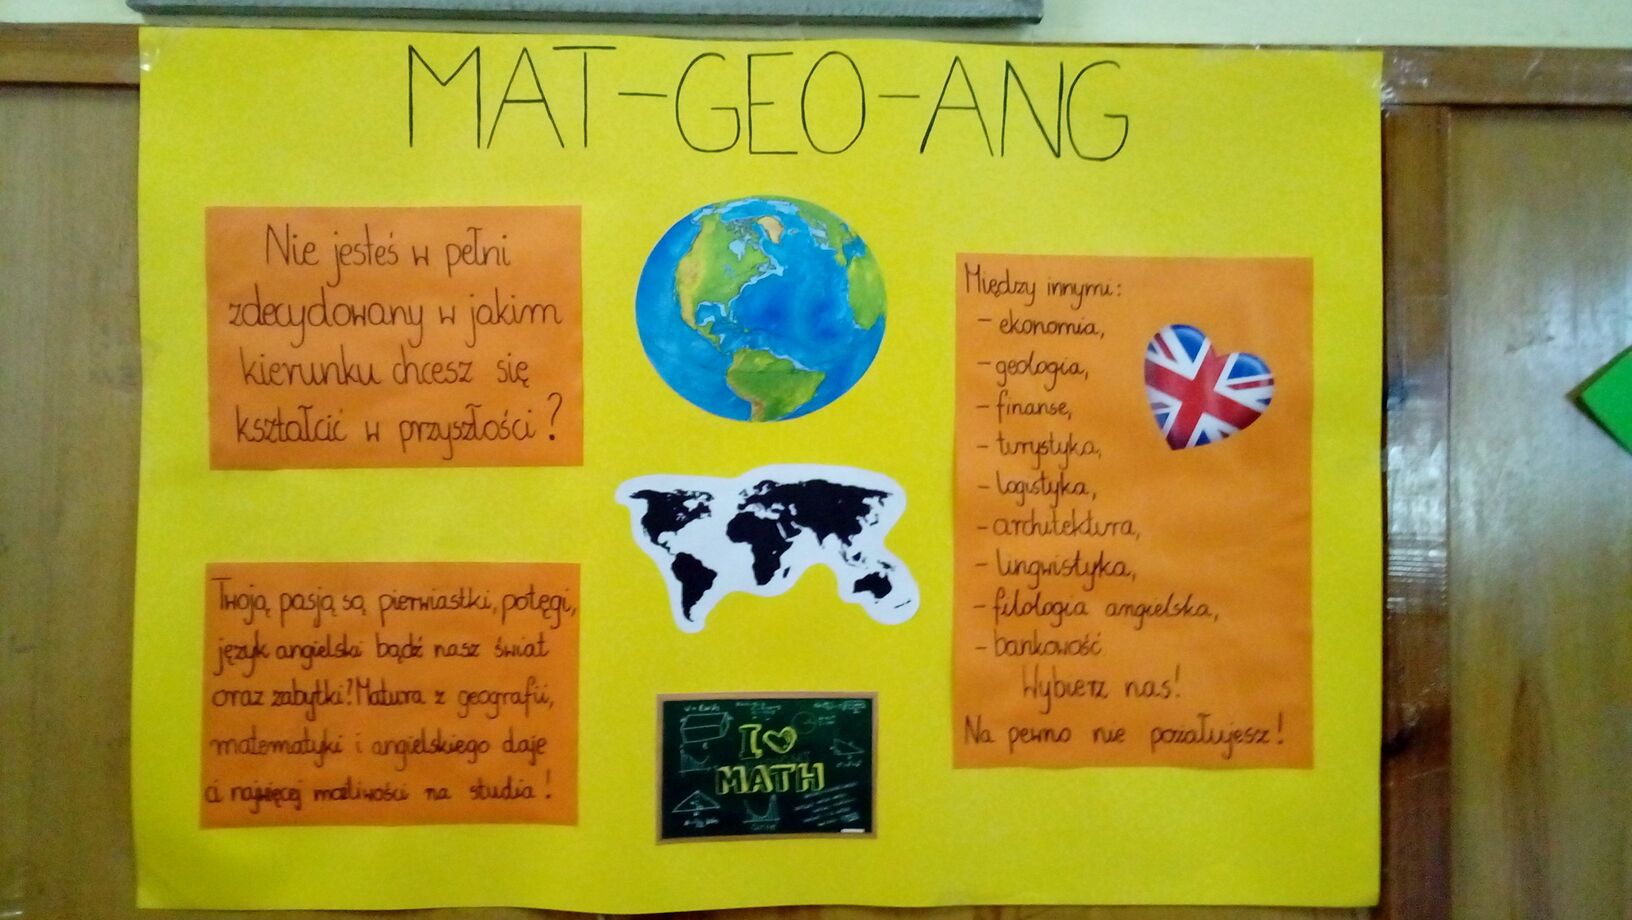 MAT-GEO-ANG
Nie jesteś w pełni
zdecydowany w jakim
kierunku chcesz się
kształcić w przyszłości?
Twoją pasją są pierwiastki, potęgi,
język angielski bądź nasz świat
oraz zabytki? Matura z geografii,
matematyki i angielskiego daje
ci najwięcej możliwości na studia!
I
MATH
Między innymi:
- ekonomia,
- geologia,
- finanse,
- turystyka,
- logistyka,
- architektura,
- lingwistyka,
- filologia angielska,
- bankowość
Wybierz nas!
Na pewno nie pożałujesz!